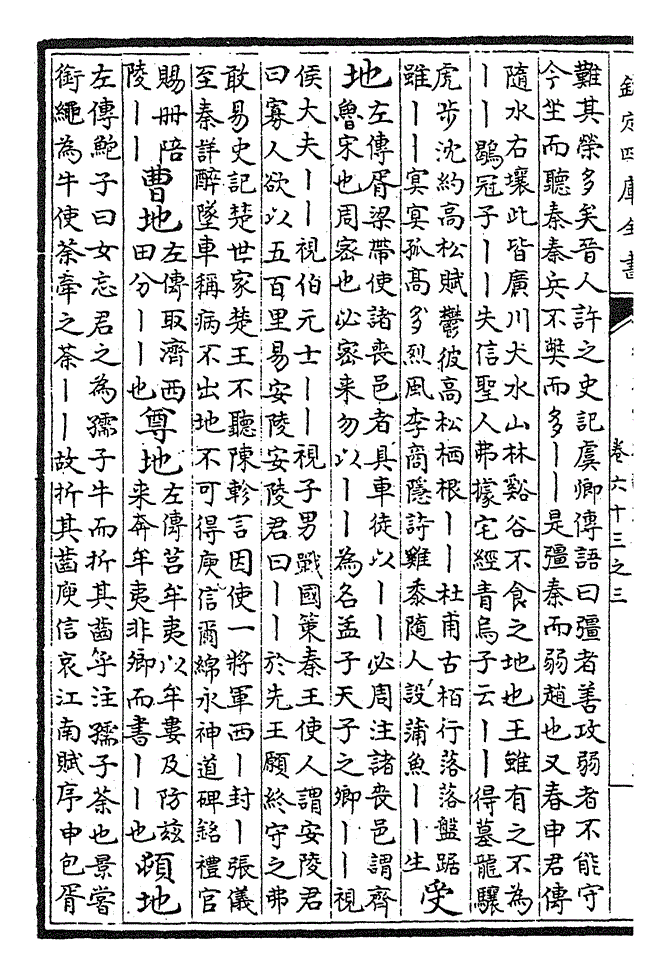 欽定四庫全書
卷六十三之三
難其榮多矣晉人許之史記虞卿傳語曰彊者善攻弱者不能守
今坐而聽秦秦兵不獘而多丨丨是彊秦而弱趙也又春申君傳
隨水右壤此皆廣川大水山林谿谷不食之地也王雖有之不為
丨丨鶡冠子丨丨失信聖人弗據宅經青烏子云丨丨得墓龍驤
虎步沈約高松賦鬱彼高松栖根丨丨杜甫古柏行落落盤踞
雖丨丨冥冥孤高多烈風李商隱詩雖黍隨人設蒲魚丨丨生
受
地
左傳胥梁帶使諸喪邑者具車徒以丨丨必周注諸喪邑謂齊
魯宋也周密也必密来勿以丨丨為名孟子天子之卿丨丨視
侯大夫丨丨視伯元士丨丨視子男戰國策秦王使人謂安陵君
曰寡人欲以五百里易安陵安陵君曰丨丨於先王願終守之弗
敢易史記楚世家楚王不聽陳軫言因使一將軍西丨封丨張儀
至秦詳醉墜車稱病不出地不可得庾信爾綿永神道碑銘禮官
賜冊陪
陵丨丨
曹地
左傳取濟西
田分丨丨也
尊地
左傳莒牟夷以牟婁及防兹
来奔牟夷非卿而書丨丨也
頃地
左傳鮑子曰女忘君之為孺子牛而折其齒乎注孺子荼也景嘗
銜繩為牛使荼牽之荼丨丨故折其齒庾信哀江南賦序申包胥